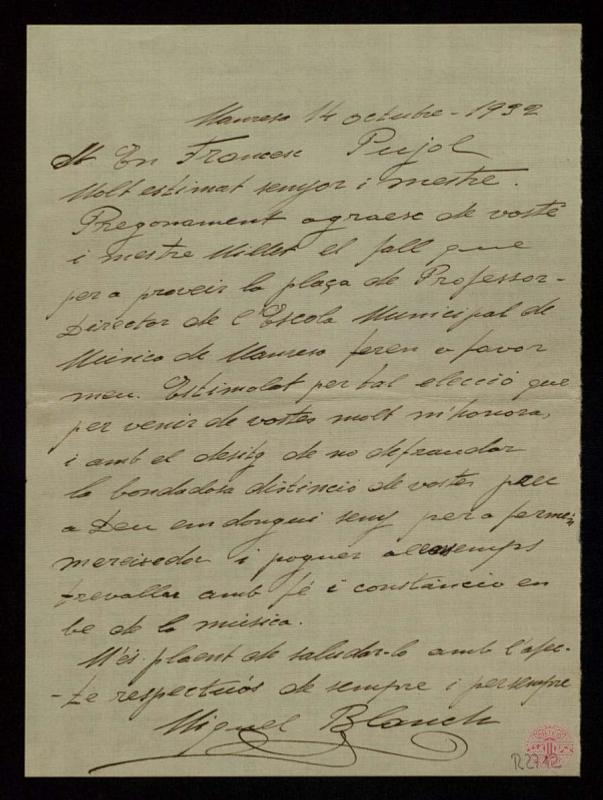 Manresa 14 octubre - 1932
En Francesc Pujol
Molt estimat senyor i mestre.
Pregonament agraesc de vostè
i mestre Millet el fall que
per a proveir la plaça de Professor-
Director de l'Escola Municipal de
Música de Manresa feren a favor
meu. Estimolat per tal elecció que
per venir de vostes molt m'honora,
i amb el desitg de no defraudar
la bondadosa distinció de vostes prec
a Deu em dongui seny per a ferme'n
mereixedor i poguer ensemps
trevallar amb fé i constancia en
be de la música.
M'és plaent de saludar-lo amb l'afec-
-te respectuós de sempre i per sempre
Miguel Blanch
R.2712